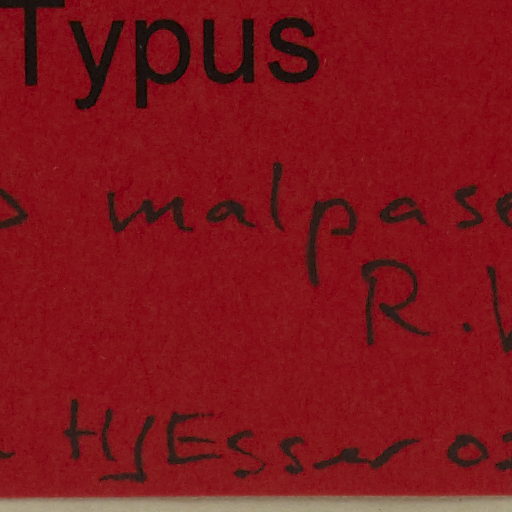 Typus
malpase
R.
HJEsser